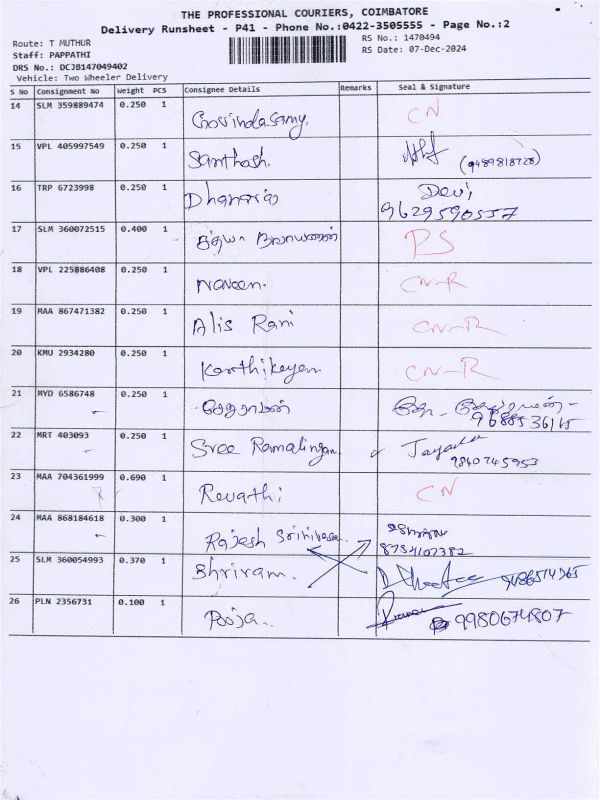 THE PROFESSIONAL COURIERS, COIMBATORE
Delivery Runsheet - P41 - Phone No.:0422-3505555 - Page No.:2
Route: T MUTHUR RS No.: 1470494
Staff: PAPPATHI RS Date: 07-Dec-2024
DRS No.: DCJB147049402
Vehicle: Two Wheeler Delivery
S No Consignment No Weight PCS Consignee Details Remarks Seal & Signature
14 SLM 359889474 0.250 1 Govindasamy. CN
15 VPL 405997549 0.250 1 Santhosh. (9489818728)
16 TRP 6723998 0.250 1 Dhanaraj Devi
9629590557
17 SLM 360072515 0.400 1 PS
18 VPL 225886408 0.250 1 Naveen. CN-R
19 MAA 867471382 0.250 1 Alis Rani CN-R
20 KMU 2934280 0.250 1 Karthikeyan CN-R
21 MYD 6586748 0.250 1
22 MRT 403093 0.250 1 Sree Ramalingam 9840745953
23 MAA 704361999 0.690 1 Revathi CN
24 MAA 868184618 0.300 1 Rajesh Srinivasan
8754107382
25 SLM 360054993 0.370 1 Shriram.
26 PLN 2356731 0.100 1 Pooja.. 9980674807